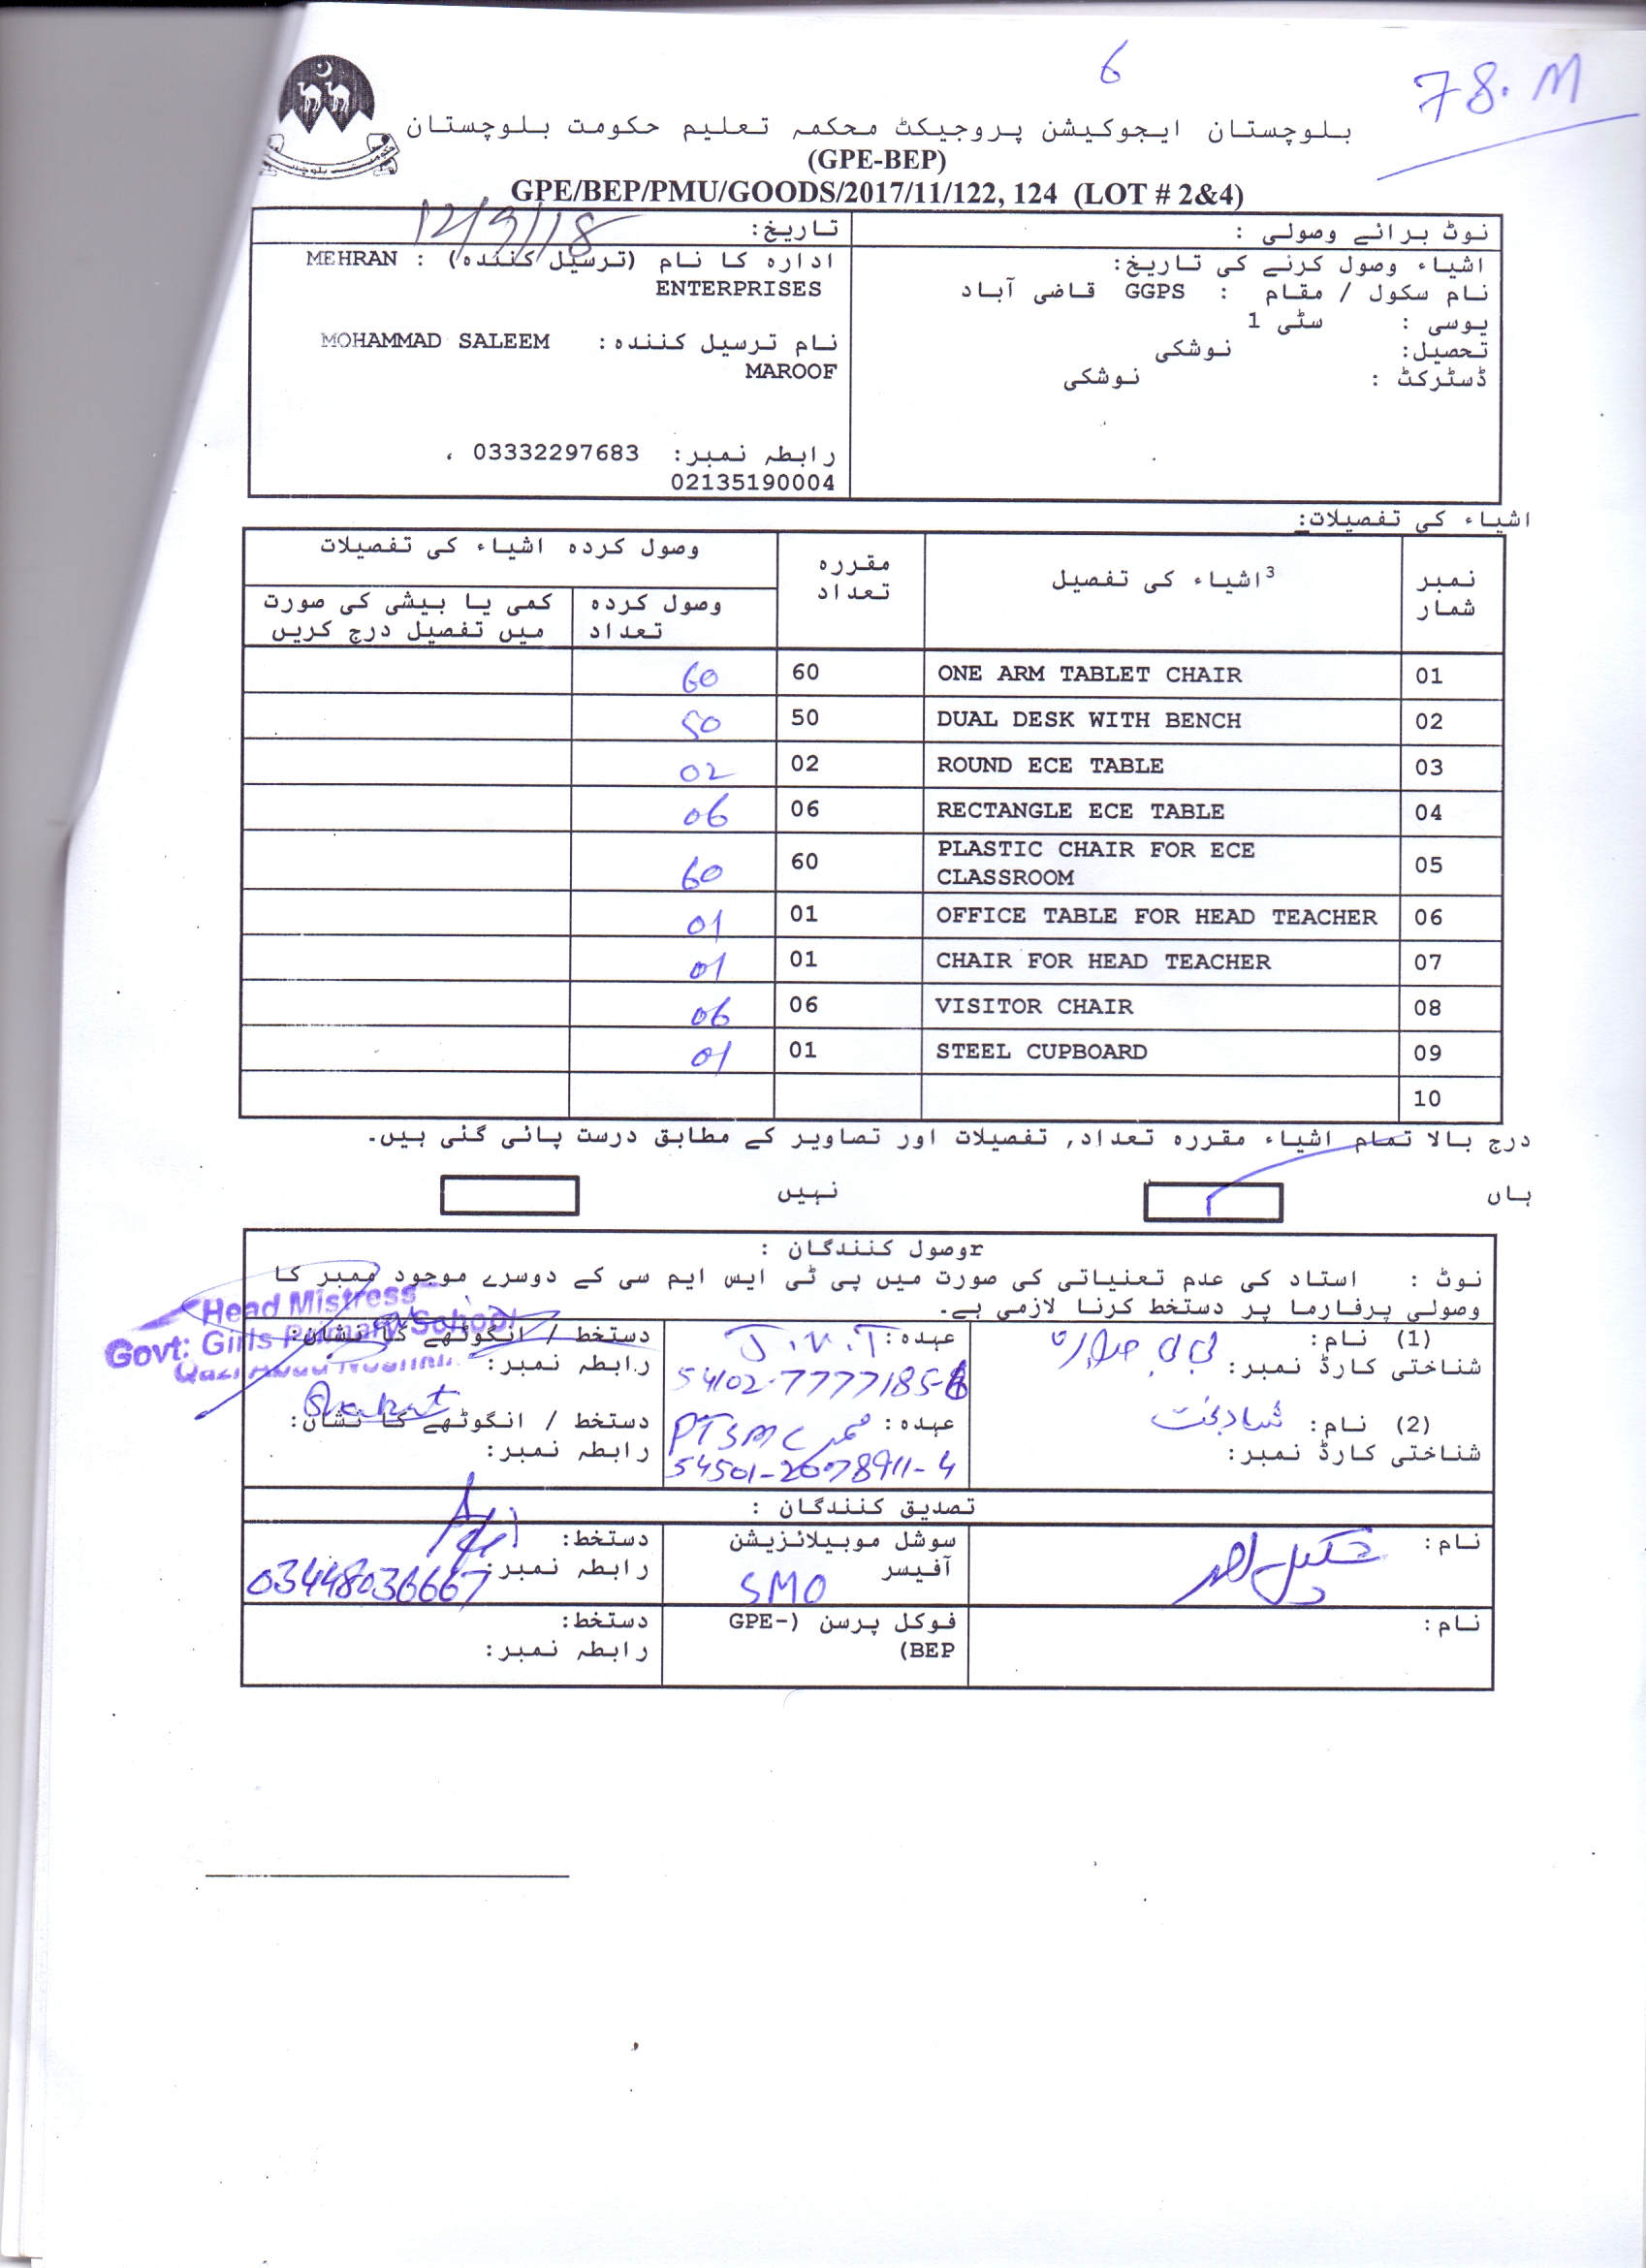 6
78.M
بلوچستان ایجوکیشن پروجیکٹ محکمہ تعلیم حکومت بلوچستان
(GPE-BEP)
GPE/BEP/PMU/GOODS/2017/11/122, 124 (LOT # 2&4)
نوٹ برائے وصولی :
اشیاء وصول کرنے کی تاریخ:
نام سکول / مقام : GGPS قاضی آباد
یوسی : سٹی 1
تحصیل: نوشکی
ڈسٹرکٹ : نوشکی
تاریخ: 12/3/18
ادارہ کا نام (ترسیل کنندہ) : MEHRAN
ENTERPRISES
نام ترسیل کنندہ: MOHAMMAD SALEEM
MAROOF
رابطہ نمبر: 03332297683 ،
02135190004
اشیاء کی تفصیلات:
نمبر شمار | اشیاء کی تفصیل3 | مقررہ تعداد | وصول کردہ اشیاء کی تفصیلات
وصول کردہ تعداد | کمی یا بیشی کی صورت میں تفصیل درج کریں
01 ONE ARM TABLET CHAIR 60 60
02 DUAL DESK WITH BENCH 50 50
03 ROUND ECE TABLE 02 02
04 RECTANGLE ECE TABLE 06 06
05 PLASTIC CHAIR FOR ECE CLASSROOM 60 60
06 OFFICE TABLE FOR HEAD TEACHER 01 01
07 CHAIR FOR HEAD TEACHER 01 01
08 VISITOR CHAIR 06 06
09 STEEL CUPBOARD 01 01
10
درج بالا تمام اشیاء مقررہ تعداد, تفصیلات اور تصاویر کے مطابق درست پائی گئی ہیں۔
ہاں نہیں
rوصول کنندگان :
نوٹ : استاد کی عدم تعنیاتی کی صورت میں پی ٹی ایس ایم سی کے دوسرے موجود ممبر کا
وصولی پرفارما پر دستخط کرنا لازمی ہے۔
(1) نام: بی بی
شناختی کارڈ نمبر:
عہدہ: J.V.T
54102-7777185-6
دستخط / انگوٹھے کا نشان:
رابطہ نمبر:
Head Mistress
Govt: Girls Primary School
(2) نام: شاد بخت
شناختی کارڈ نمبر:
عہدہ: PTSMC ممبر
54501-2078911-4
دستخط / انگوٹھے کا نشان:
رابطہ نمبر:
تصدیق کنندگان :
نام: شکیل احمد
سوشل موبیلائزیشن
آفیسر SMO
دستخط:
رابطہ نمبر: 03448036667
نام:
فوکل پرسن (GPE-
BEP)
دستخط:
رابطہ نمبر: